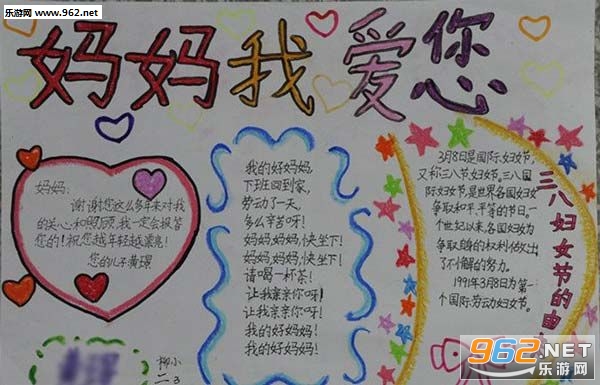 乐游网
www.962.net
妈妈我爱您
妈妈:
谢谢您这么多年来对我
的关心和照顾,我一定会报答
您的!祝您越年轻越漂亮!
您的儿子黄璟
我的好妈妈,
下班回到家,
劳动了一天,
多么辛苦呀!
妈妈,妈妈,快坐下!
妈妈,妈妈,快坐下!
请喝一杯茶!
让我亲亲你呀!
让我亲亲你呀!
我的好妈妈!
我的好妈妈!
3月8日是国际妇女节,
又称三八节妇女节。三八国
际妇女节,是世界各国妇女
争取和平、平等的节日。一
个世纪以来,各国妇女为
争取自身的权利做出
了不懈的努力。
1991年3月8日为第一
个国际劳动妇女节。
三八妇女节的由
柳小
二3
962.NET
乐游网